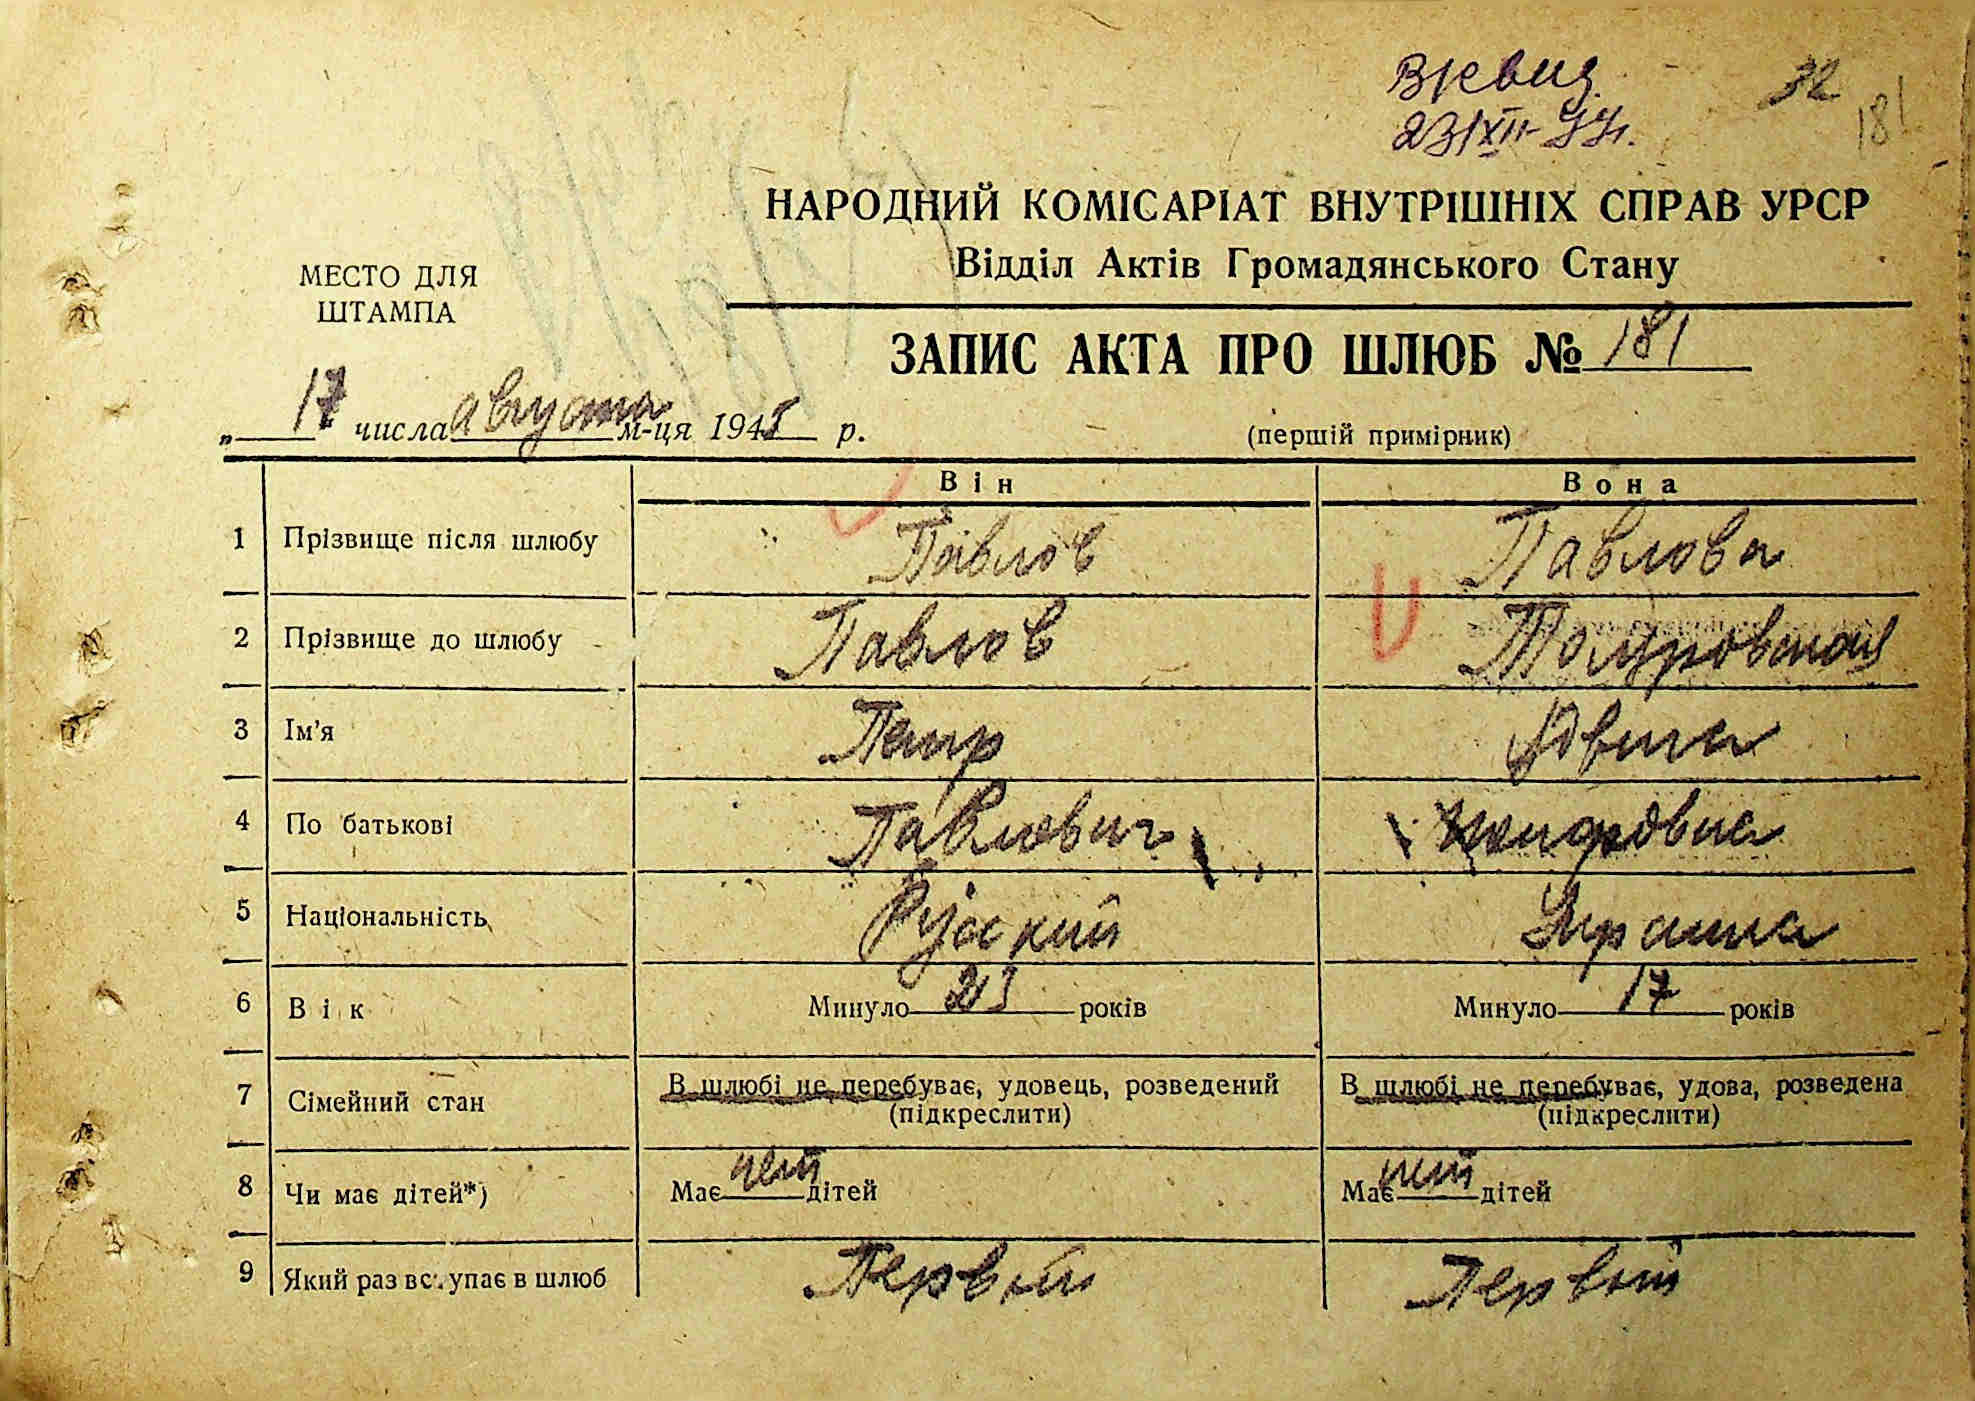 32
181
НАРОДНИЙ КОМІСАРІАТ ВНУТРІШНІХ СПРАВ УРСР
Відділ Актів Громадянського Стану
МЕСТО ДЛЯ
ШТАМПА
ЗАПИС АКТА ПРО ШЛЮБ № 181
„ 17 " числа августа м-ця 1945 р.
(перший примірник)
Він Вона
1 Прізвище після шлюбу Павлов Павлова
2 Прізвище до шлюбу Павлов
3 Ім'я Петр
4 По батькові Павлович
5 Національність Русский
6 Вік Минуло 23 років Минуло 17 років
7 Сімейний стан В шлюбі не перебуває, удовець, розведений В шлюбі не перебуває, удова, розведена
(підкреслити) (підкреслити)
8 Чи має дітей*) Має нет дітей Має нет дітей
9 Який раз вступає в шлюб Первый Первый